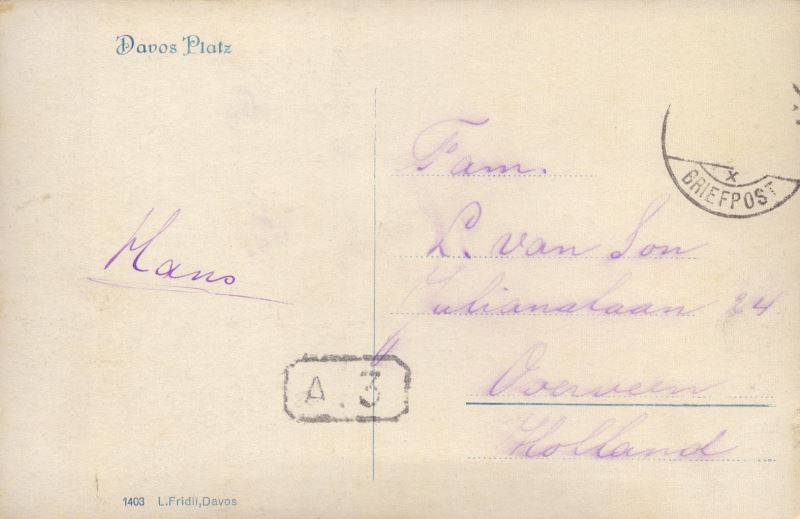 Davos Platz
BRIEFPOST
Fam.
L. van Son
Julianalaan 24
Overveen
Holland
Hans
A. 3
1403 L. Fridli, Davos